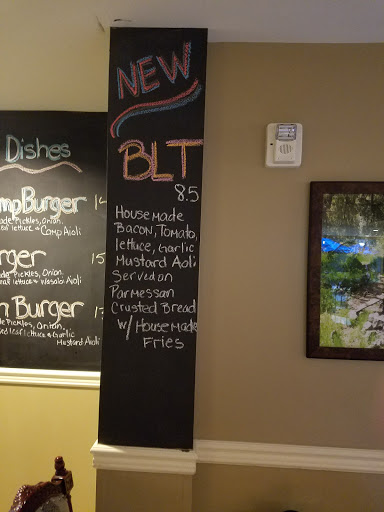 Dishes
mpBurger 1
ade Pickles, Onion.
eaf lettuce & Camp Aioli
rger 15
Pickles, Onion.
eaf lettuce & Wasabi Aioli
n Burger 1
e Pickles, Onion,
lettuce & Garlic
Mustard Aioli
NEW
BLT
8.5
House made
Bacon, Tomato,
lettuce, Garlic
Mustard Aoli
Served on
Parmessan
Crusted Bread
w/ House made
Fries